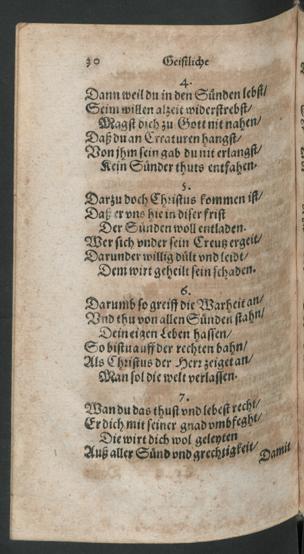 30 Geistliche
4.
Dann weil du in den Sünden lebst/
Seim willen alzeit widerstrebst/
Magst dich zu Gott nit nahen/
Daß du an Creaturen hangst/
Von jhm sein gab du nit erlangst/
Kein Sünder thuts entfahen.
5.
Darzu doch Christus kommen ist/
Daß er vns hie in diser frist
Der Sünden woll entladen.
Wer sich vnder sein Creutz ergeit/
Darunder willig dült vnd leidt/
Dem wirt geheilt sein schaden.
6.
Darumb so greiff die Warheit an/
Vnd thu von allen Sünden stahn/
Dein eigen Leben hassen/
So bistu auff der rechten bahn/
Als Christus der Herr zeiget an/
Man sol die welt verlassen.
7.
Wan du das thust vnd lebest recht/
Er dich mit seiner gnad vmbfeght/
Die wirt dich wol geleyten
Auß aller Sünd vnd grechtigkeit/
Damit